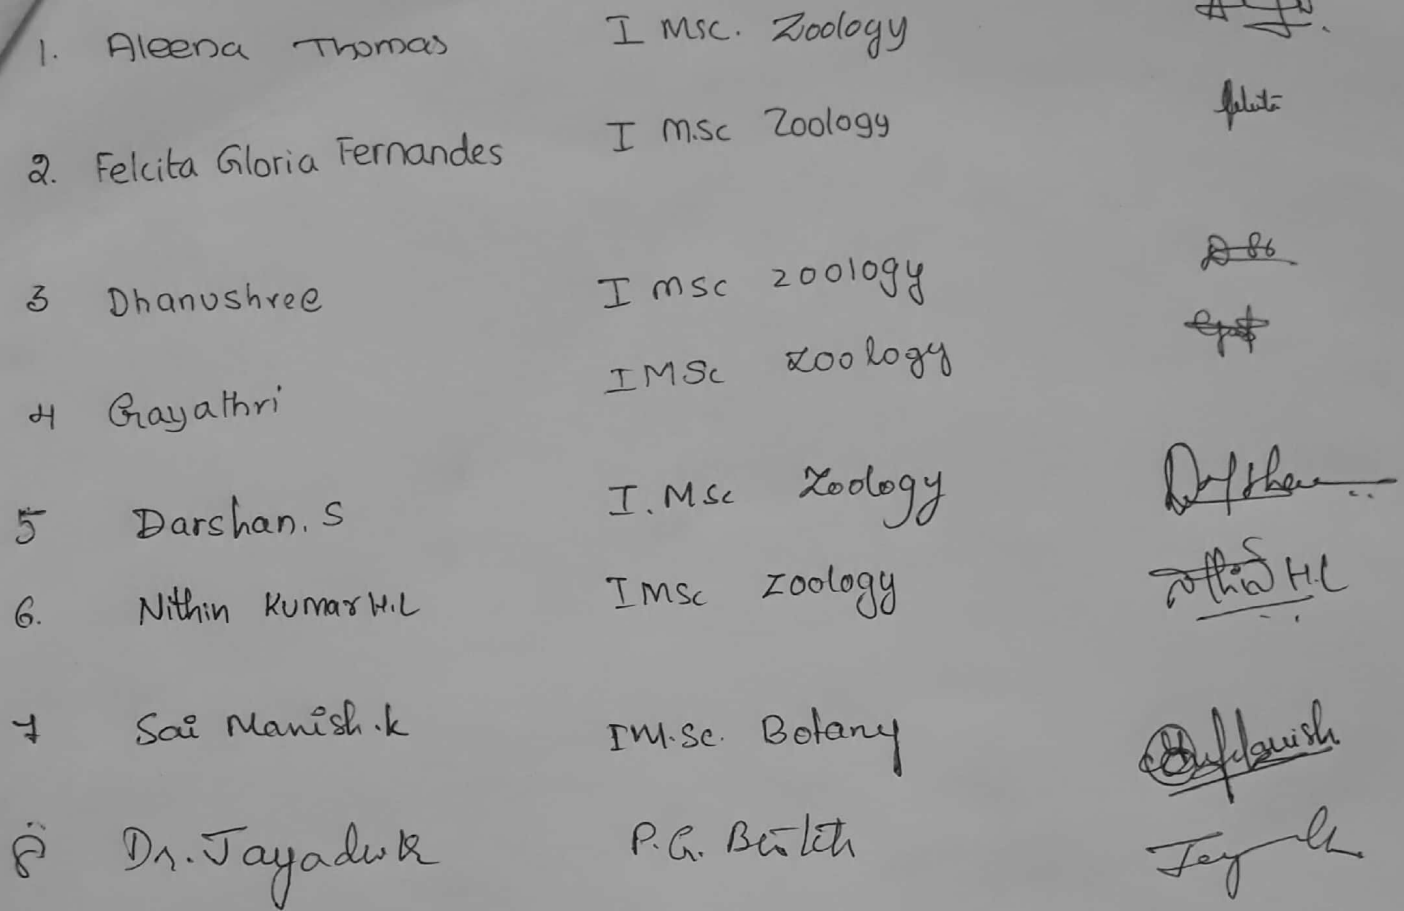 1. Aleena Thomas I Msc. Zoology
2. Felcita Gloria Fernandes I M.sc Zoology
3 Dhanushree I msc zoology
4 Gayathri I MSc zoology
5 Darshan. S I. MSc Zoology Darshan
6. Nithin Kumar H.L I MSc zoology H.L
7 Sai Manish.k I M.Sc. Botany
8 Dr. P.G.